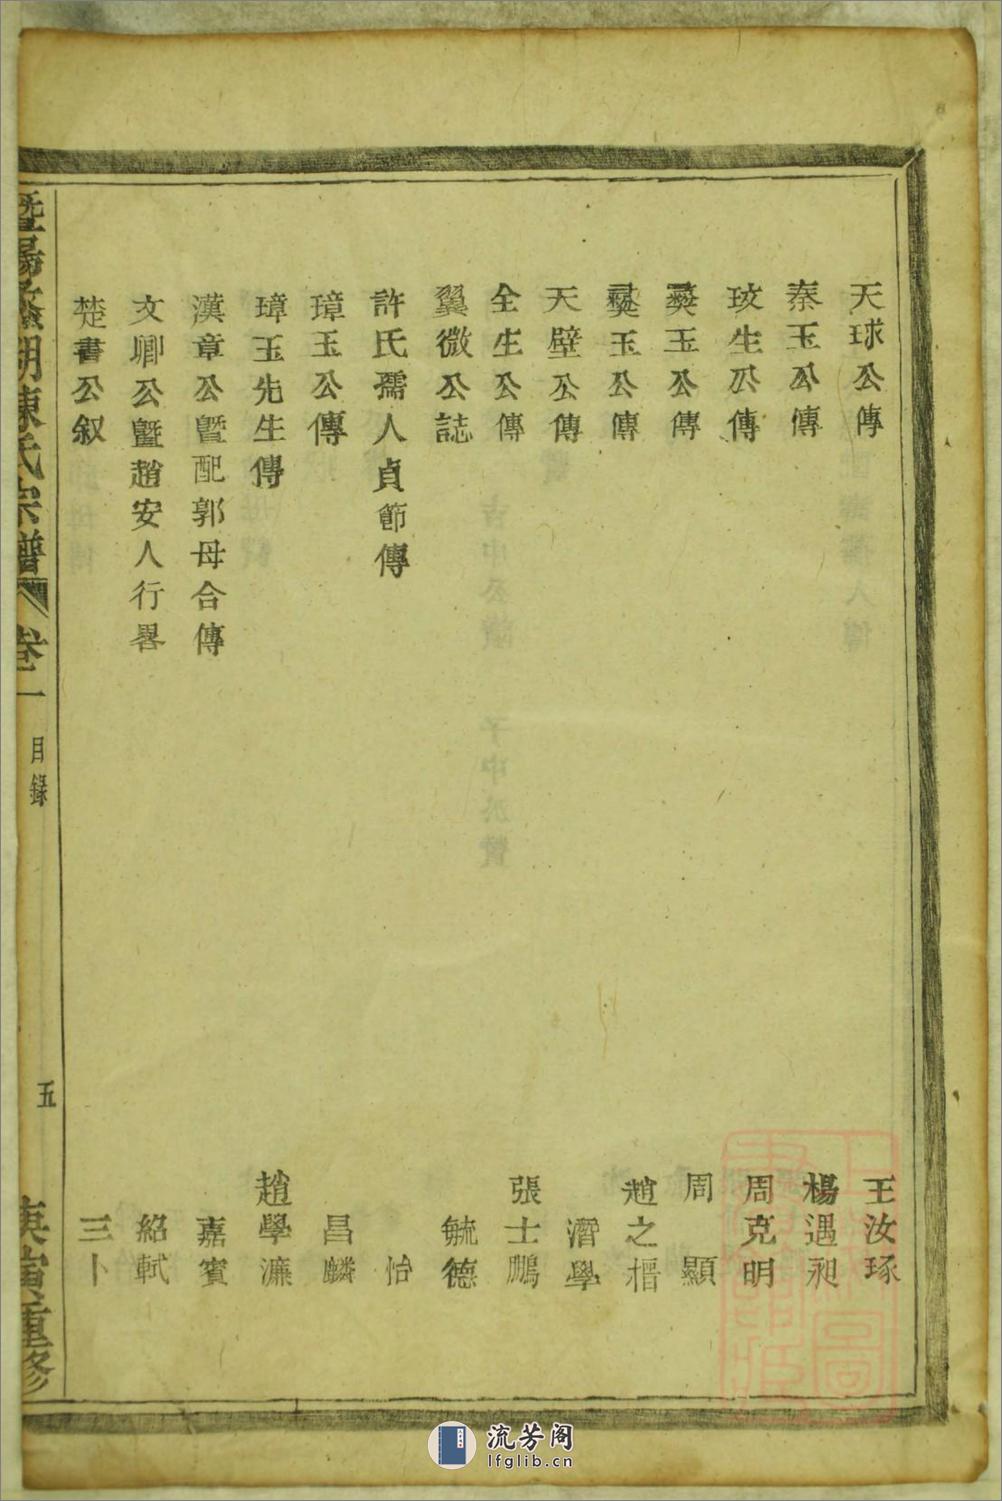 天球公傳　王汝琢
秦玉公傳　楊遇昶
玟生公傳　周克明
彝玉公傳　周顯
彝玉公傳　趙之槢
天壁公傳　潛學
全生公傳　張士鵬
翼微公誌　毓德
許氏孺人貞節傳　怡
璋玉公傳　昌麟
璋玉先生傳　趙學濂
漢章公暨配郭母合傳　嘉賓
文卿公暨趙安人行畧　紹軾
楚書公叙　三卜
暨陽 湖陳氏宗譜　卷二　目錄　五　庚寅重修
流芳阁
lfglib.cn